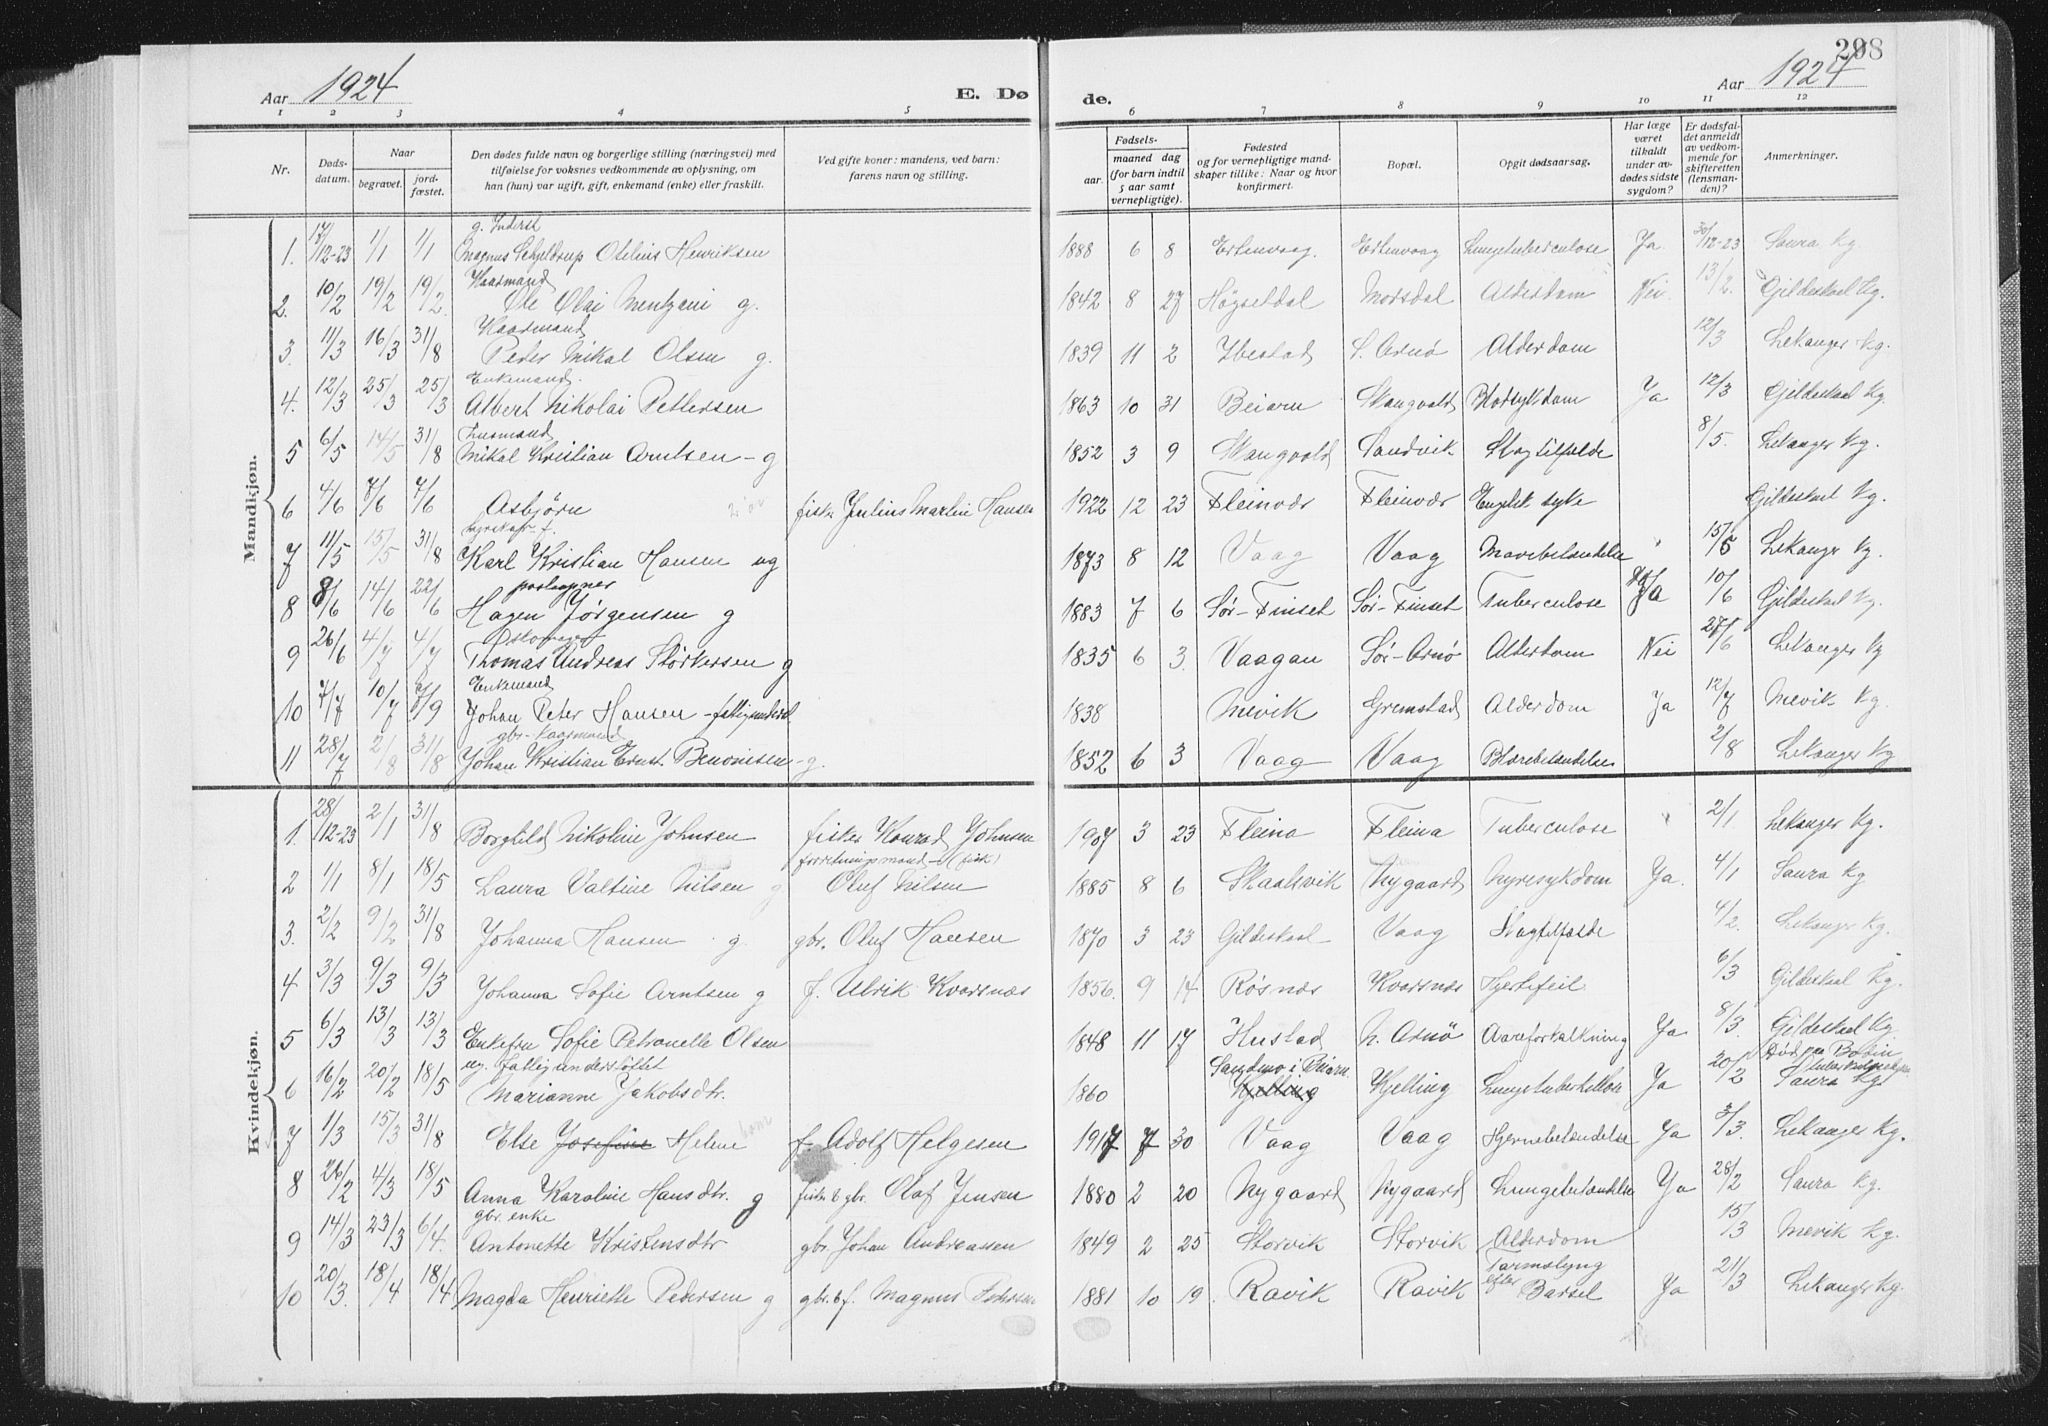 298
Aar 1924 E. Dø de. Aar 1924
1 2 3 4 5 6 7 8 9 10 11 12
Nr. Døds-datum. Naar begravet. jord-fæstet. Den dødes fulde navn og borgerlige stilling (næringsvei) med tilføielse for voksnes vedkommende av oplysning, om han (hun) var ugift, gift, enkemand (enke) eller fraskilt. Ved gifte koner: mandens, ved barn: farens navn og stilling. Fødsels- aar. maaned dag (for barn indtil 5 aar samt vernepligtige). Fødested og for vernepligtige mandskaper tillike: Naar og hvor konfirmert. Bopæl. Opgit dødsaarsag. Har læge været tilkaldt under avdødes sidste sygdom? Er dødsfaldet anmeldt av vedkommende for skifteretten (lensmanden)? Anmerkninger.
Mandkjøn.
g. Inderst
1. 17/12-23 1/1 1/1 Magnus Schjeldrup Otelius Henriksen 1888 6 8 Ertenvaag. Ertenvaag Lungetuberculose Ja 30/12-23 Saura kg
Kaarmand
2. 10/2 19/2 19/2. Ole Olai Mentzoni g. 1842 8 27 Høgsetdal Morsdal Alderdom Nei 13/2. Gildeskaal kg.
Kaarmand
3. 11/3 16/3 31/8 Peder Mikal Olsen g. 1839 11 2 Ibestad S. Arnø Alderdom 12/3 Lekanger kg.
Enkemand.
4. 12/3 25/3 25/3 Albert Nikolai Pettersen 1863 10 31 Beiarn Skangvold Blodsykdom Ja 12/3 Gildeskaal kg.
Husmand
5 6/5 14/5 31/8 Mikal Kristian Arntsen - g 1852 3 9 Skangvold Sandvik Slagtilfælde 8/5. Lekanger kg.
6 4/6 7/6 7/6 Asbjørn 2 år fisker Julius Martin Hansen 1922 12 23 Fleinvær Fleinvær Engelsk syke Gildeskaal kg.
7 11/5 15/5 31/8 Karl Kristian Hansen ug 1873 8 12 Vaag Vaag Mavebetændelse " 15/5 Lekanger kg.
postaapner
8 8/6 14/6 22/6 Hagen Jørgensen g 1883 7 6 Sør-Finset Sør-Finset Tuberculose Ja 10/6 Gildeskaal kg.
9 26/6 4/7 4/7 Thomas Andreas Størkersen g 1835 6 3. Vaagan Sør-Arnø Alderdom Nei 27/6 Lekanger kg
Enkemand
10 7/7 10/7 7/9 Johan Peter Hansen - fattigunderst. 1838 Mevik Gremstad Alderdom Ja 12/7 Mevik kg.
gbr-kaarmand
11 28/7 2/8 31/8 Johan Kristian Ernst Benonisen - g. 1852 6 3 Vaag Vaag Blærebetændelse 2/8 Lekanger kg
Kvindekjøn.
1. 28/12-23 2/1 31/8 Borghild Nikoline Johnsen fisker Konrad Johnsen 1907 3 23 Fleina Fleina Tuberculose " 2/1. Lekanger kg.
forretningsmand - (fisk)
2 1/1 8/1 18/5 Laura Valtine Nilsen g Oluf Nilsen 1885 8 6 Skaalsvik Nygaard Nyresykdom Ja. 4/1 Saura kg
3. 2/2 9/2 31/8 Johanna Hansen g gbr. Oluf Hansen 1870 3 23 Gildeskaal Vaag Slagtilfælde 4/2. Lekanger kg.
4 3/3 9/3 9/3 Johanna Sofie Arntsen g f. Ulrik Kvarsnæs 1856. 9 14 Røsnæs Kvarsnæs Hjertefeil 6/3 Gildeskaal kg.
5 6/3 13/3 13/3 Enkefru Sofie Petronelle Olsen 1848 11 17 Hustad N. Arnø Aareforkalkning Ja 8/3. Gildeskaal kg
ug. fattigunderstøttet Sandmo i Beiarn Død paa Bodin
6 16/2 20/2 18/5 Marianne Jakobsdtr. 1860 Kjelling Kjelling Lungetuberkulose Ja 20/2 Saura kg
7 1/3 15/3 31/8 Else Josefine Helene barn f. Adolf Helgesen 1917 7 30 Vaag Vaag Hjernebetændelse Ja 3/3. Lekanger kg.
8 26/2 4/3 18/5 Anna Karoline Hansdtr. g fisker & gbr. Olaf Jensen 1880 2 20 Nygaard Nygaard Lungebetændelse Ja 28/2 Saura kg.
gbr. enke
9 14/3 23/3 6/4. Antonette Kristensdtr gbr. Johan Andreassen 1849 2 25 Storvik Storvik Alderdom 15/3 Mevik kg.
Tarmslyng
10 20/3. 18/4 18/4 Magda Henriette Pedersen g gbr. & f. Magnus Pedersen 1881 10 19. Ravik Ravik efter Barsel Ja 21/3 Lekanger kg.